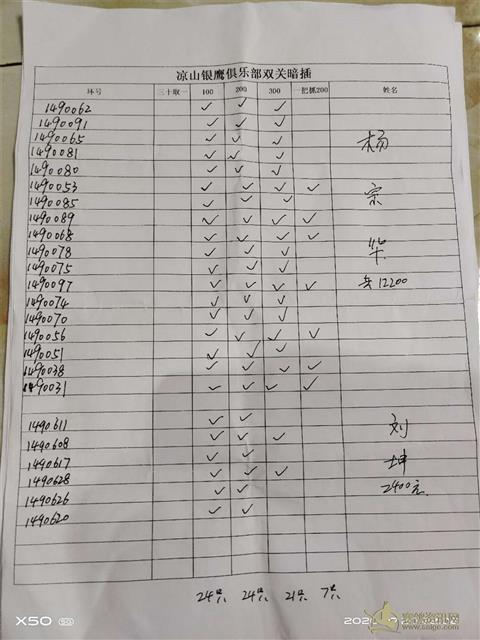 凉山银鹰俱乐部双关暗插
环号 三十取一 100 200 300 一把抓200 姓名
1490062
1490091
1490065 杨
1490081
1490080
1490053 宗
1490085
1490089
1490068
1490078 华
1490075
1490097 共12200
1490074
1490070
1490056
1490051
1490038
1490031
1490611 刘
1490608
1490617 坤
1490628 2400元
1490626
1490620
24只 24只 21只 7只
X50 5G